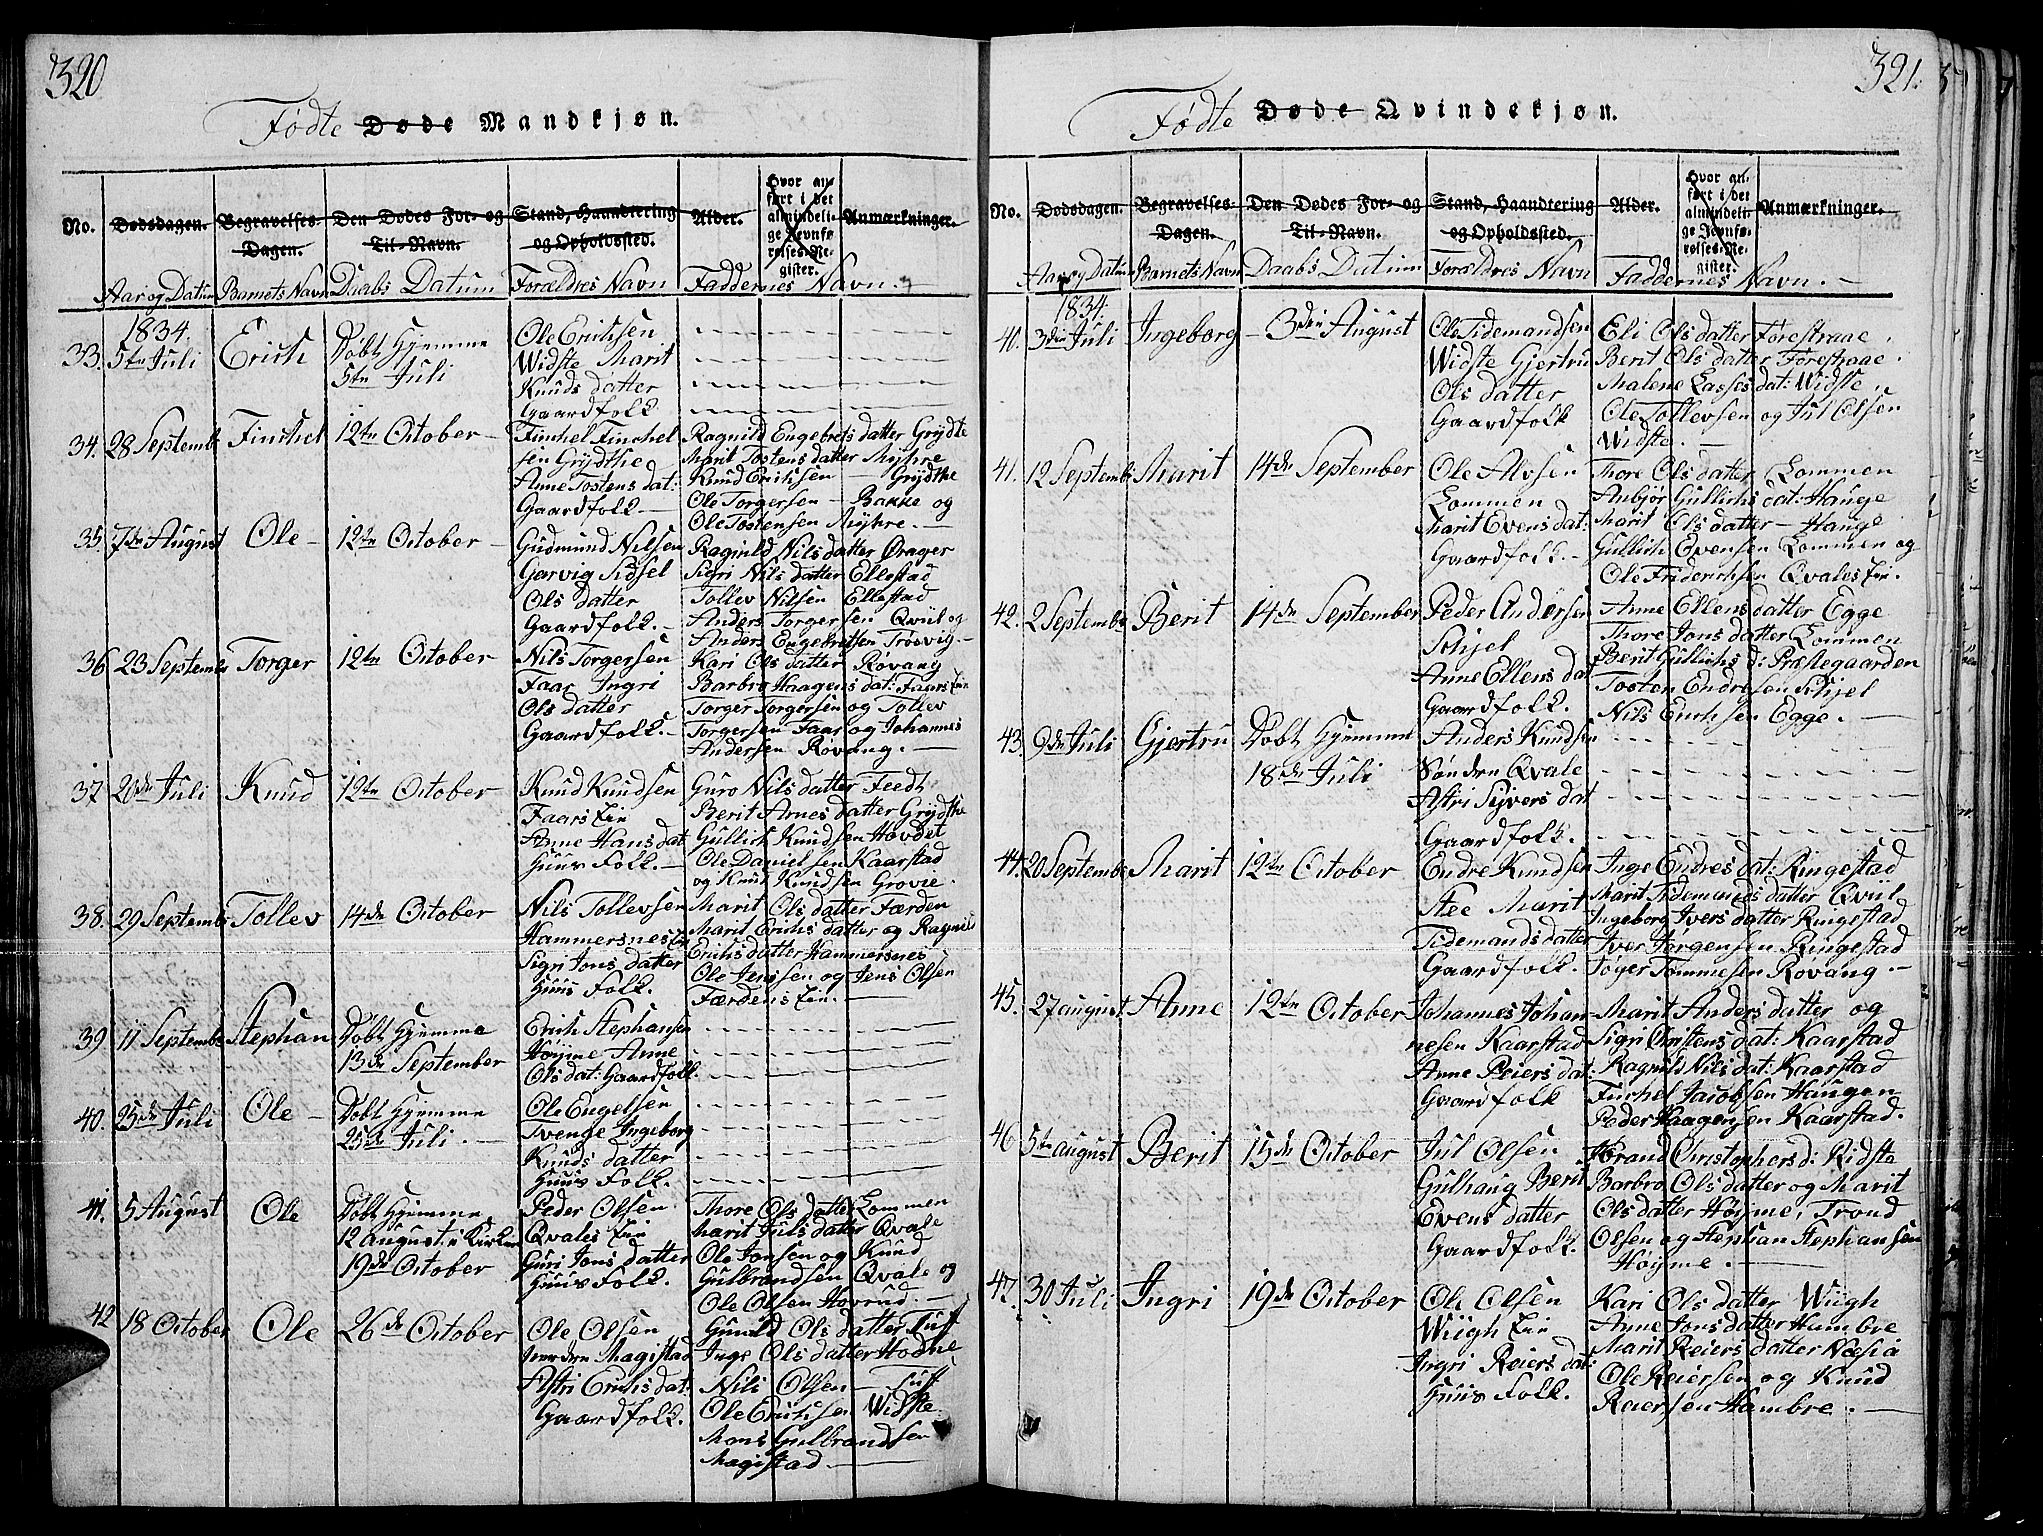 320
Fødte Døde Mandkjøn.
No.
Dødsdagen.
Begravelses-
Dagen.
Den Dødes For- og
Til-Navn.
Stand, Haandtering
og Opholdssted.
Alder.
Hvor an-
ført i det
almindeli-
ge Jevnfø-
relses-Re-
gister.
Anmærkninger.
Aar og Datum
Barnets Navn
Daabs Datum
Forældres Navn
Faddernes Navn.
1834.
33. 5te Juli
Erich
Døbt Hjemme
5te Juli
Ole Erichsen
Widste Marit
Knuds datter
Gaardfolk
34. 28 Septembr
Finchel
12te October
Finchel Finchel
sen Grÿdthe
Anne Tostens dat:
Gaardfolk
Ragnild Engebrets datter Grÿdte
Marit Tostens datter Mÿhre
Knud Erichsen Grÿdthe
Ole Torgersen Bakke og
Ole Tostensen Mÿhre.
35. 7de August
Ole
12te October
Gudmund Nilsen
Garvig Sidsel
Ols datter
Gaardfolk.
Ragnild Nils datter Qrager
Sigri Nils datter Ellestad
Tollev Nilsen Ellestad
Anders Torgersen Qviil og
Anders Engebretsen Trosvig
36 23 Septembr
Torger
12te October
Nils Torgersen
Faar Ingri
Ols datter
Gaardfolk.
Kari Ols datter Røvang
Barbro Haagens dat: Faars Eie
Torger Torgersen og Tollev
Torgersen Faar og Johannes
Andersen Røvang.
37 20de Juli
Knud
12te October
Knud Knudsen
Faars Eie
Anne Hans dat
Huus Folk.
Guro Nils datter Feedt
Berit Arnes datter Grÿdthe
Gullich Knudsen Høvdet
Ole Danielsen Kaarstad
og Knud Knudsen Grovie.
38. 29 Septembr
Tollev
14de October
Nils Tollevsen
Hammersnes Eie
Sigri Jons datter
Huus Folk.
Marit Ols datter Færden
Marit Erichs datter og Ragnild
Erichs datter Hammersnes
Ole Jenssen og Jens Olsen
Færdens Eie.
39 11 Septembr
Stephan
Døbt Hjemme
13de September
Erich Stephansen
Høÿme Anne
Ols dat: Gaardfolk.
40. 25de Juli
Ole
Døbt Hjemme
25de Juli.
Ole Engelsen
Tvenge Ingeborg
Knuds datter
Huus Folk.
41. 5 August
Ole
Døbt Hjemme
12 August i Kirken
19de October
Peder Olsen
Qvales Eie
Guri Jons datter
Huus Folk.
Thore Ols datter Lommen
Marit Juls datter Qvale
Ole Jonsen og Knud
Gulbrandsen Qvale og
Ole Olsen Hovrud.
42 18 October
Ole
26de October
Ole Olsen
Magistad
Astri Erichs dat:
Gaardfolk.
Gunild Ols datter Tuff
Inge Ols datter Hodne
Nils Olsen Tuff
Ole Erichsen Widste
Mons Gulbrandsen
Magistad
321.
Fødte Døde Qvindekjøn.
No.
Dødsdagen.
Begravelses-
Dagen.
Den Dødes For- og
Til-Navn.
Stand, Haandtering
og Opholdssted.
Alder.
Hvor an-
ført i det
almindeli-
ge Jevnfø-
relses-Re-
gister.
Anmærkninger.
Aar og Datum
Barnets Navn
Daabs Datum
Forældres Navn
Faddernes Navn.
1834.
40. 3die Juli
Ingeborg
3die August
Ole Tidemandsen
Widste Gjertru
Ols datter
Gaardfolk
Eli Ols datter Førestraae
Berit Ols datter Førestraae
Malene Lasses dat: Widste
Ole Tollevsen og Jul Olsen
Widste.
41. 12 Septembr
Marit
14de September
Ole Alvsen
Lommen
Marit Evens dat:
Gaardfolk.
Thore Ols datter Lommen
Anbjør Gullichs dat: Hauge
Marit Ols datter Hauge
Gullich Evensen Lommen og
Ole Friderichsen Qvales Eie.
42. 2 Septembr
Berit
14de September
Peder Andersen
Schjel
Anne Ellens dat
Gaardfolk.
Anne Ellens datter Egge
Thore Jons datter Lommen
Berit Gullichs d: Præstegaarden
Tosten Endresen Schjel
Nils Erichsen Egge.
43. 9de Juli
Gjertru
Døbt Hjemme
18de Juli
Anders Knudsen
Søndre Qvale
Astri Sÿvers dat
Gaardfolk.
44. 20 Septembr
Marit
12te October
Endre Knudsen
Stee Marit
Tidemands datter
Gaardfolk.
Inge Endres dat: Ringestad
Marit Tidemands datter Qviil
Ingeborg Ivers datter Ringestad
Iver Jørgensen Ringestad
Tøger Tommesen Røvang.
45. 27 august
Anne
12te October
Johannes Johan-
nesen Kaarstad
Anne Peiers dat:
Gaardfolk
Marit Anders datter og
Sigri Christens dat: Kaarstad
Ragnild Nils dat: Kaarstad
Finchel Jacobsen Haugen
Peder Haagensen Kaarstad.
46 5te august
Berit
15de October
Jul Olsen
Gulhaug Berit
Evens datter
Gaardfolk.
Christophers d: Ridste
Barbro Ols datter og Marit
Ols datter Høÿme, Trond
Olsen og Stephan Stephansen
Høÿme.
47. 30 Juli
Ingri
19de October
Ole Olsen
Wiigh Eie
Ingri Reiers dat:
Huus Folk.
Kari Ols datter Wiigh
Anne Jons datter Hambre
Marit Reiers datter Næsia
Ole Reiersen og Knud
Reiersen Hambre.